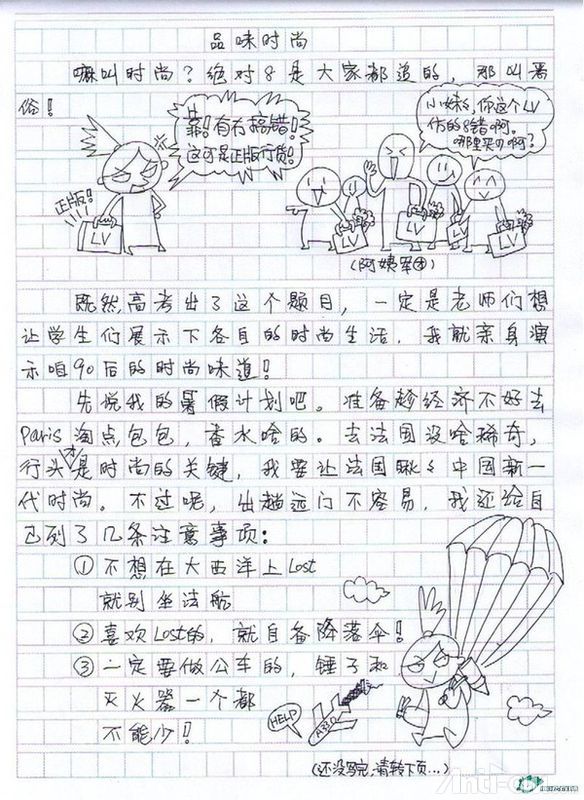 品味时尚
嘛叫时尚？绝对8是大家都追的，那叫署
俗！
靠！有冇搞错！
这可是正版行货！
小妹，你这个LV
仿的8错啊。
哪里买的啊？
正版！
LV
LV
LV
LV
LV
（阿姨军团）
既然高考出了这个题目，一定是老师们想
让学生们展示下各自的时尚生活，我就亲身演
示咱90后的时尚味道！
先说我的暑假计划吧。准备趁经济不好去
Paris淘点包包，香水啥的。去法国没啥稀奇，
行头才是时尚的关键，我要让法国瞅瞅中国新一
代时尚。不过呢，出趟远门不容易，我还给自
己列了几条注意事项：
① 不想在大西洋上Lost
就别坐法航
② 喜欢Lost的，就自备降落伞！
③ 一定要做公车的，锤子和
灭火器一个都
不能少！
HELP
A330
（还没写完，请转下页…）